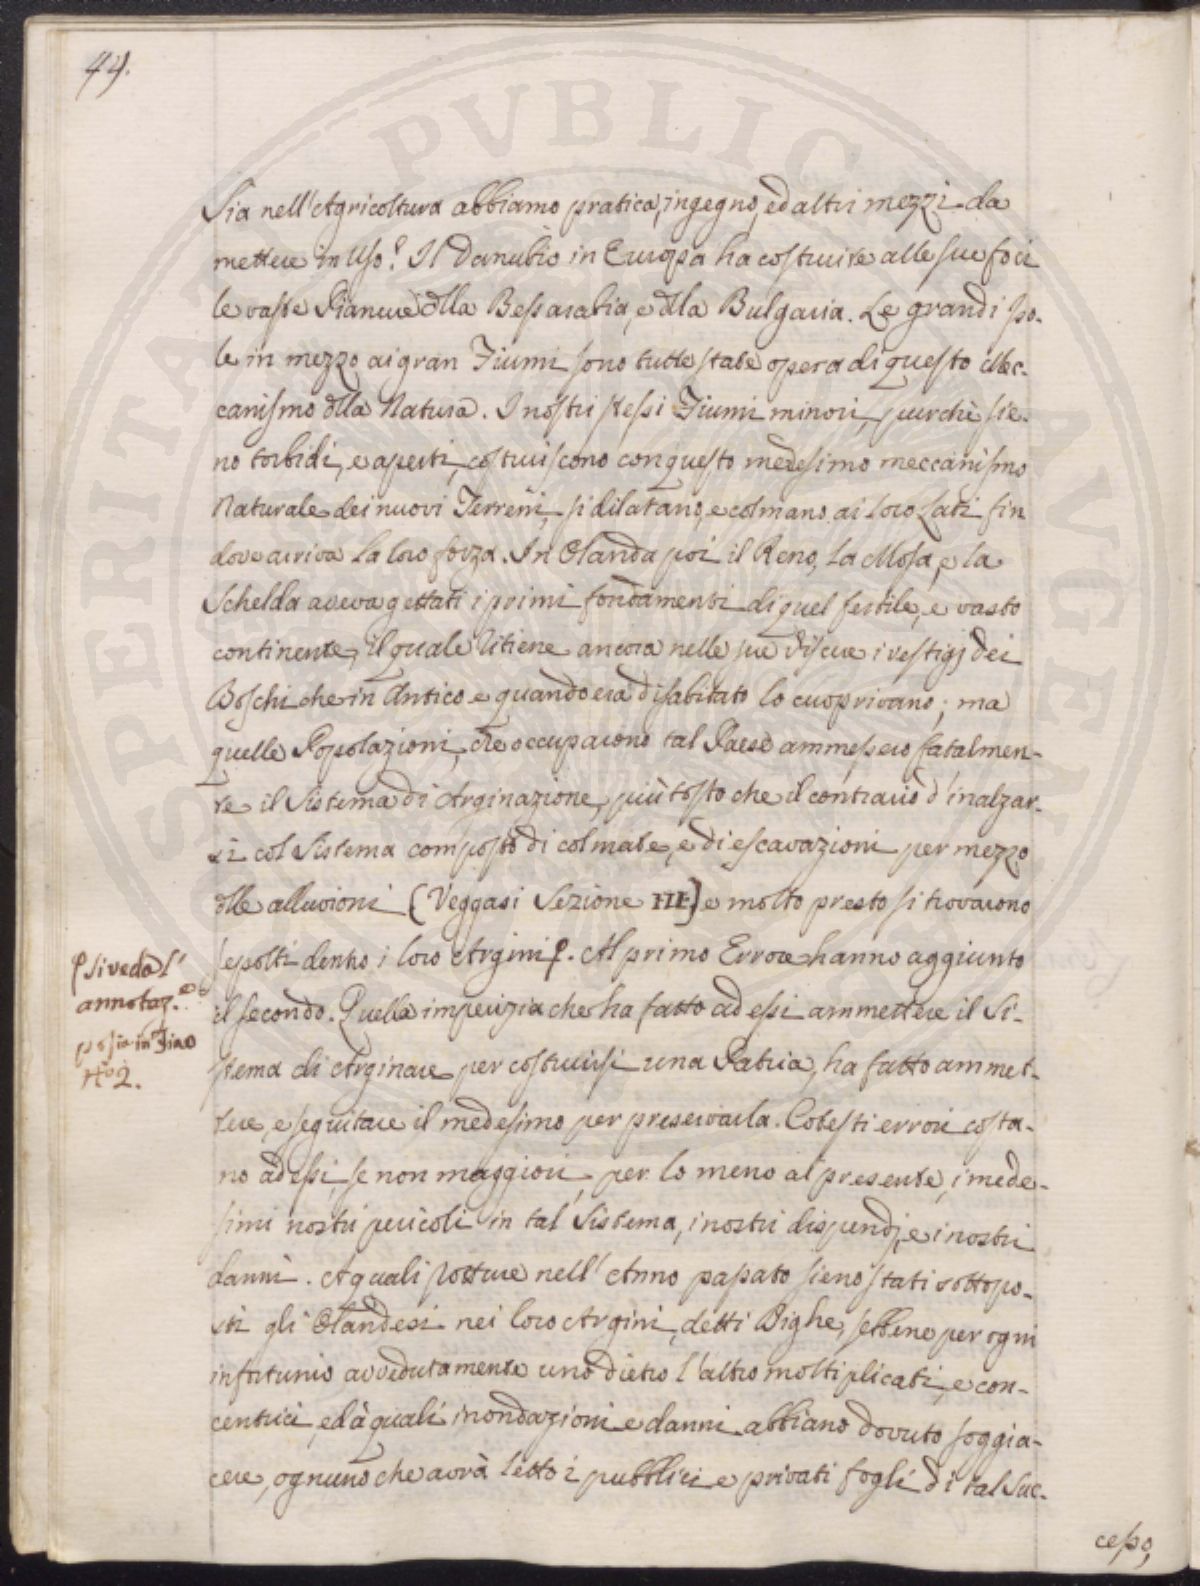 44.
Sia nell'Agricoltura abbiamo pratica, ingegno, ed altri mezzi da
mettere in Uso? Il Danubio in Europa ha costruite alle sue foci
le vaste Pianure dlla Bessarabia, e dlla Bulgaria. Le grandi Iso-
le in mezzo ai gran Fiumi sono tutte state opera di questo Mec-
canismo dlla Natura. I nostri stessi Fiumi minori, purchè sie-
no torbidi, e aperti, costruiscono con questo medesimo meccanismo
Naturale dei nuovi Terreni, si dilatano, e colmano ai loro Lati fin
dove arriva la loro forza. In Olanda poi il Reno, la Mosa, e la
Schelda aveva gettati i primi fondamenti di quel fertile, e vasto
continente, il quale ritiene ancora nelle sue viscere i vestigj dei
Boschi che in Antico e quando era disabitato lo cuoprivano; ma
quelle Popolazioni, che occuparono tal Paese ammessero fatalmen-
te il Sistema di Arginazione, più tosto che il contrario d'inalzar-
si col Sistema composto di colmate, e di escavazioni per mezzo
dlle alluvioni (Veggasi Sezione III) e molto presto si trovarono
sepolti dentro i loro Argini. Al primo Errore hanno aggiunto
il secondo. Quella imperizia che ha fatto ad essi ammettere il Si-
stema di Arginare per costruirsi una Patria, ha fatto ammet-
tere, e seguitare il medesimo per preservarla. Cotesti errori costa-
no ad essi, se non maggiori, per lo meno al presente, i mede-
simi nostri pericoli in tal Sistema, i nostri dispendj, e i nostri
danni. A quali rotture nell'Anno passato sieno stati sottopo-
sti gli Olandesi nei loro Argini, detti Dighe, sebbene per ogni
infortunio avvedutamente uno dietro l'altro moltiplicati, e con-
centrici, ed à quali inondazioni e danni abbiano dovuto soggia-
cere, ognuno che avrà letto i pubblici e privati fogli di tal Suc-
cesso,
si veda l'
annotaz.e
posta in Fine
N.o 2.
PROSPERITATI PVBLICAE AVGENDAE